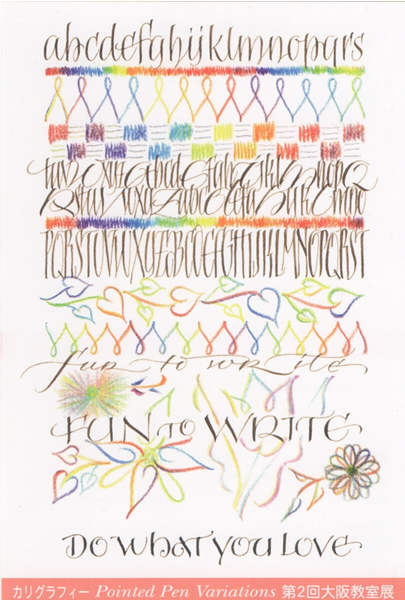 abcdefghijklmnopqrs
PQRSTUVWXYZABCDEFGHIJKLMNOPQRST
fun to write
FUN TO WRITE
DO WHAT YOU LOVE
カリグラフィー Pointed Pen Variations 第2回大阪教室展